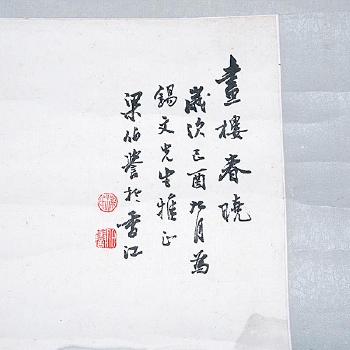 畫樓春曉
歲次己酉九月為
錫文先生雅正
梁伯譽於香江